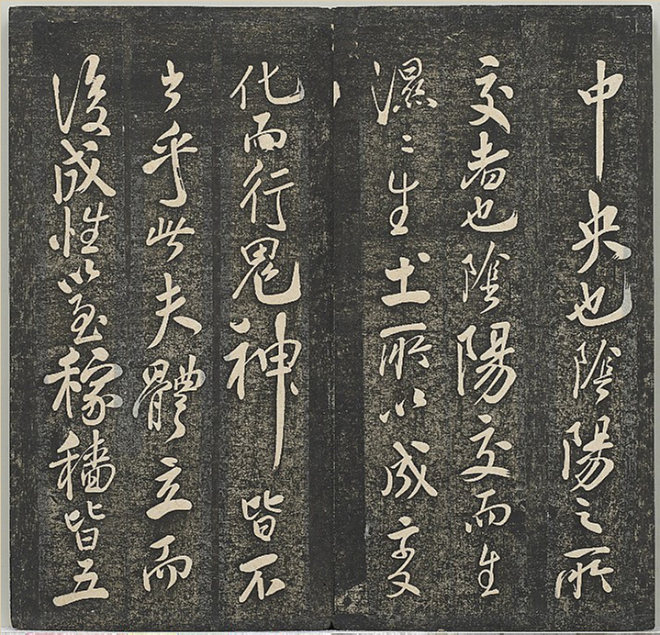 中央也陰陽之所
交者也陰陽交而生
濕〻生土所以成変
化而行鬼神皆不
出乎此夫體立而
後成性以至稼穡皆五